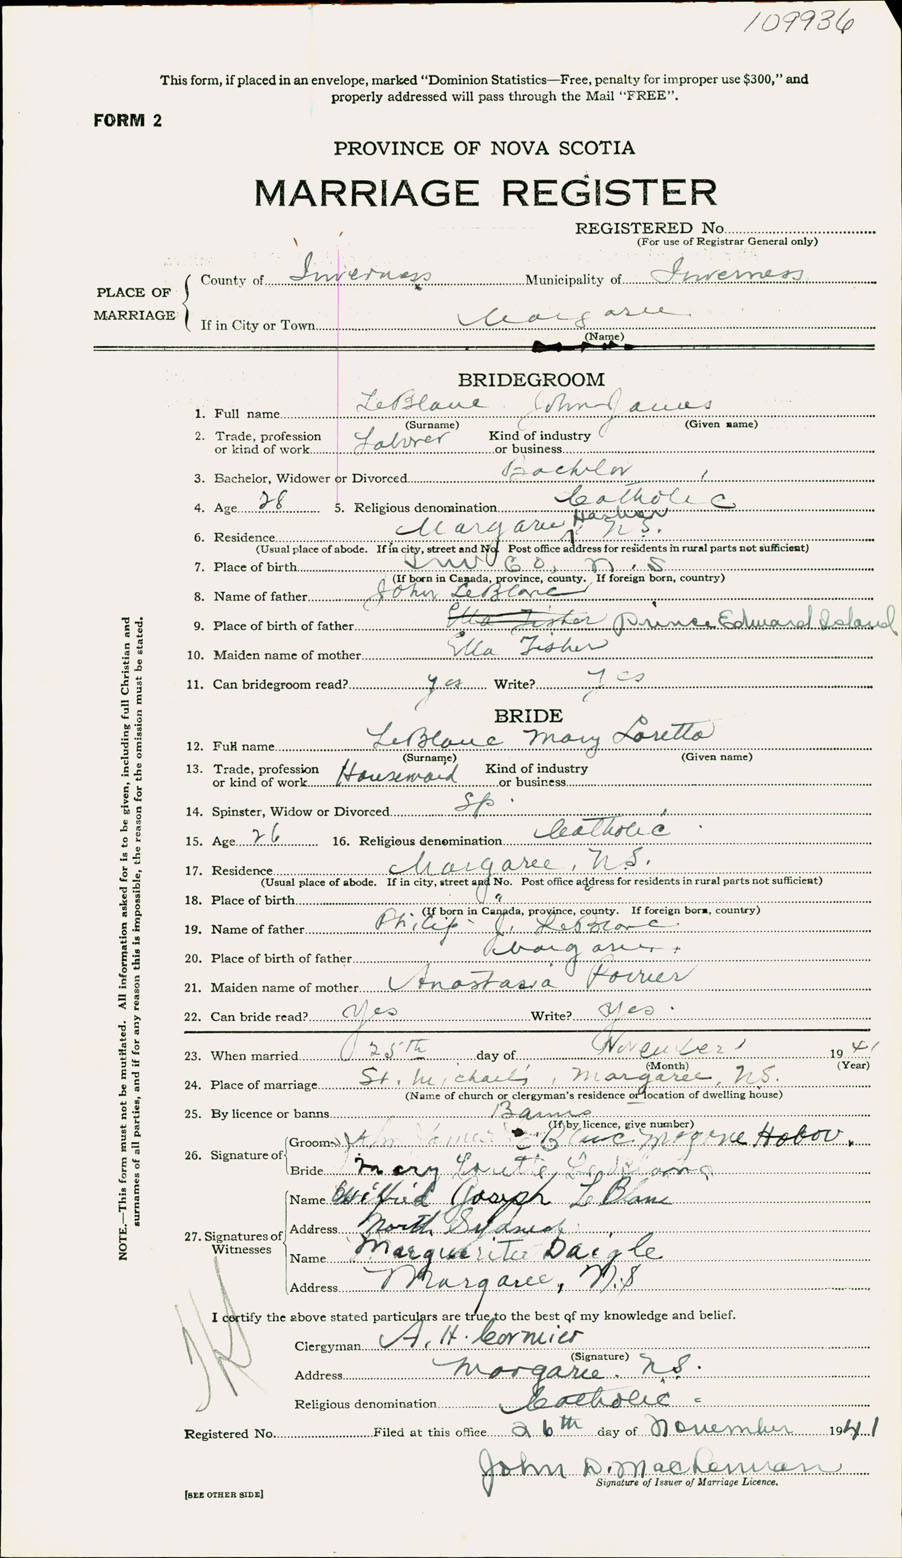 109936
This form, if placed in an envelope, marked "Dominion Statistics—Free, penalty for improper use $300," and
properly addressed will pass through the Mail "FREE".
FORM 2
PROVINCE OF NOVA SCOTIA
MARRIAGE REGISTER
REGISTERED No.
(For use of Registrar General only)
PLACE OF MARRIAGE
County of Inverness Municipality of Inverness
If in City or Town Margaree
(Name)
BRIDEGROOM
1. Full name LeBlanc John James
(Surname) (Given name)
2. Trade, profession or kind of work Laborer Kind of industry or business
3. Bachelor, Widower or Divorced Bachelor
4. Age 28 5. Religious denomination Catholic
6. Residence Margaree Harbor N.S.
(Usual place of abode. If in city, street and No. Post office address for residents in rural parts not sufficient)
7. Place of birth Inv. Co. N.S
(If born in Canada, province, county. If foreign born, country)
8. Name of father John LeBlanc
9. Place of birth of father Ella Fisher Prince Edward Island
10. Maiden name of mother Ella Fisher
11. Can bridegroom read? yes Write? yes
BRIDE
12. Full name LeBlanc Mary Loretto
(Surname) (Given name)
13. Trade, profession or kind of work Housemaid Kind of industry or business
14. Spinster, Widow or Divorced Sp.
15. Age 26 16. Religious denomination Catholic
17. Residence Margaree, N.S.
(Usual place of abode. If in city, street and No. Post office address for residents in rural parts not sufficient)
18. Place of birth "
(If born in Canada, province, county. If foreign born, country)
19. Name of father Philip J. LeBlanc
20. Place of birth of father Margaree
21. Maiden name of mother Anastasia Poirier
22. Can bride read? Yes Write? Yes.
23. When married 25th day of November 1941
(Month) (Year)
24. Place of marriage St. Michael's, Margaree, N.S.
(Name of church or clergyman's residence or location of dwelling house)
25. By licence or banns Banns
(If by licence, give number)
26. Signature of
Groom John James Le Blanc
Bride Mary Loretto LeBlanc
27. Signatures of Witnesses
Name Wilfrid Joseph LeBlanc
Address North Sydney
Name Marguerite Daigle
Address Margaree, N.S
I certify the above stated particulars are true to the best of my knowledge and belief.
Clergyman A. H. Cormier
(Signature)
Address Margaree. N.S.
Religious denomination Catholic
Registered No. Filed at this office 26th day of November 1941
John D. MacLennan
Signature of Issuer of Marriage Licence.
[SEE OTHER SIDE]
NOTE.—This form must not be mutilated. All information asked for is to be given, including full Christian and
surnames of all parties, and if for any reason this is impossible, the reason for the omission must be stated.